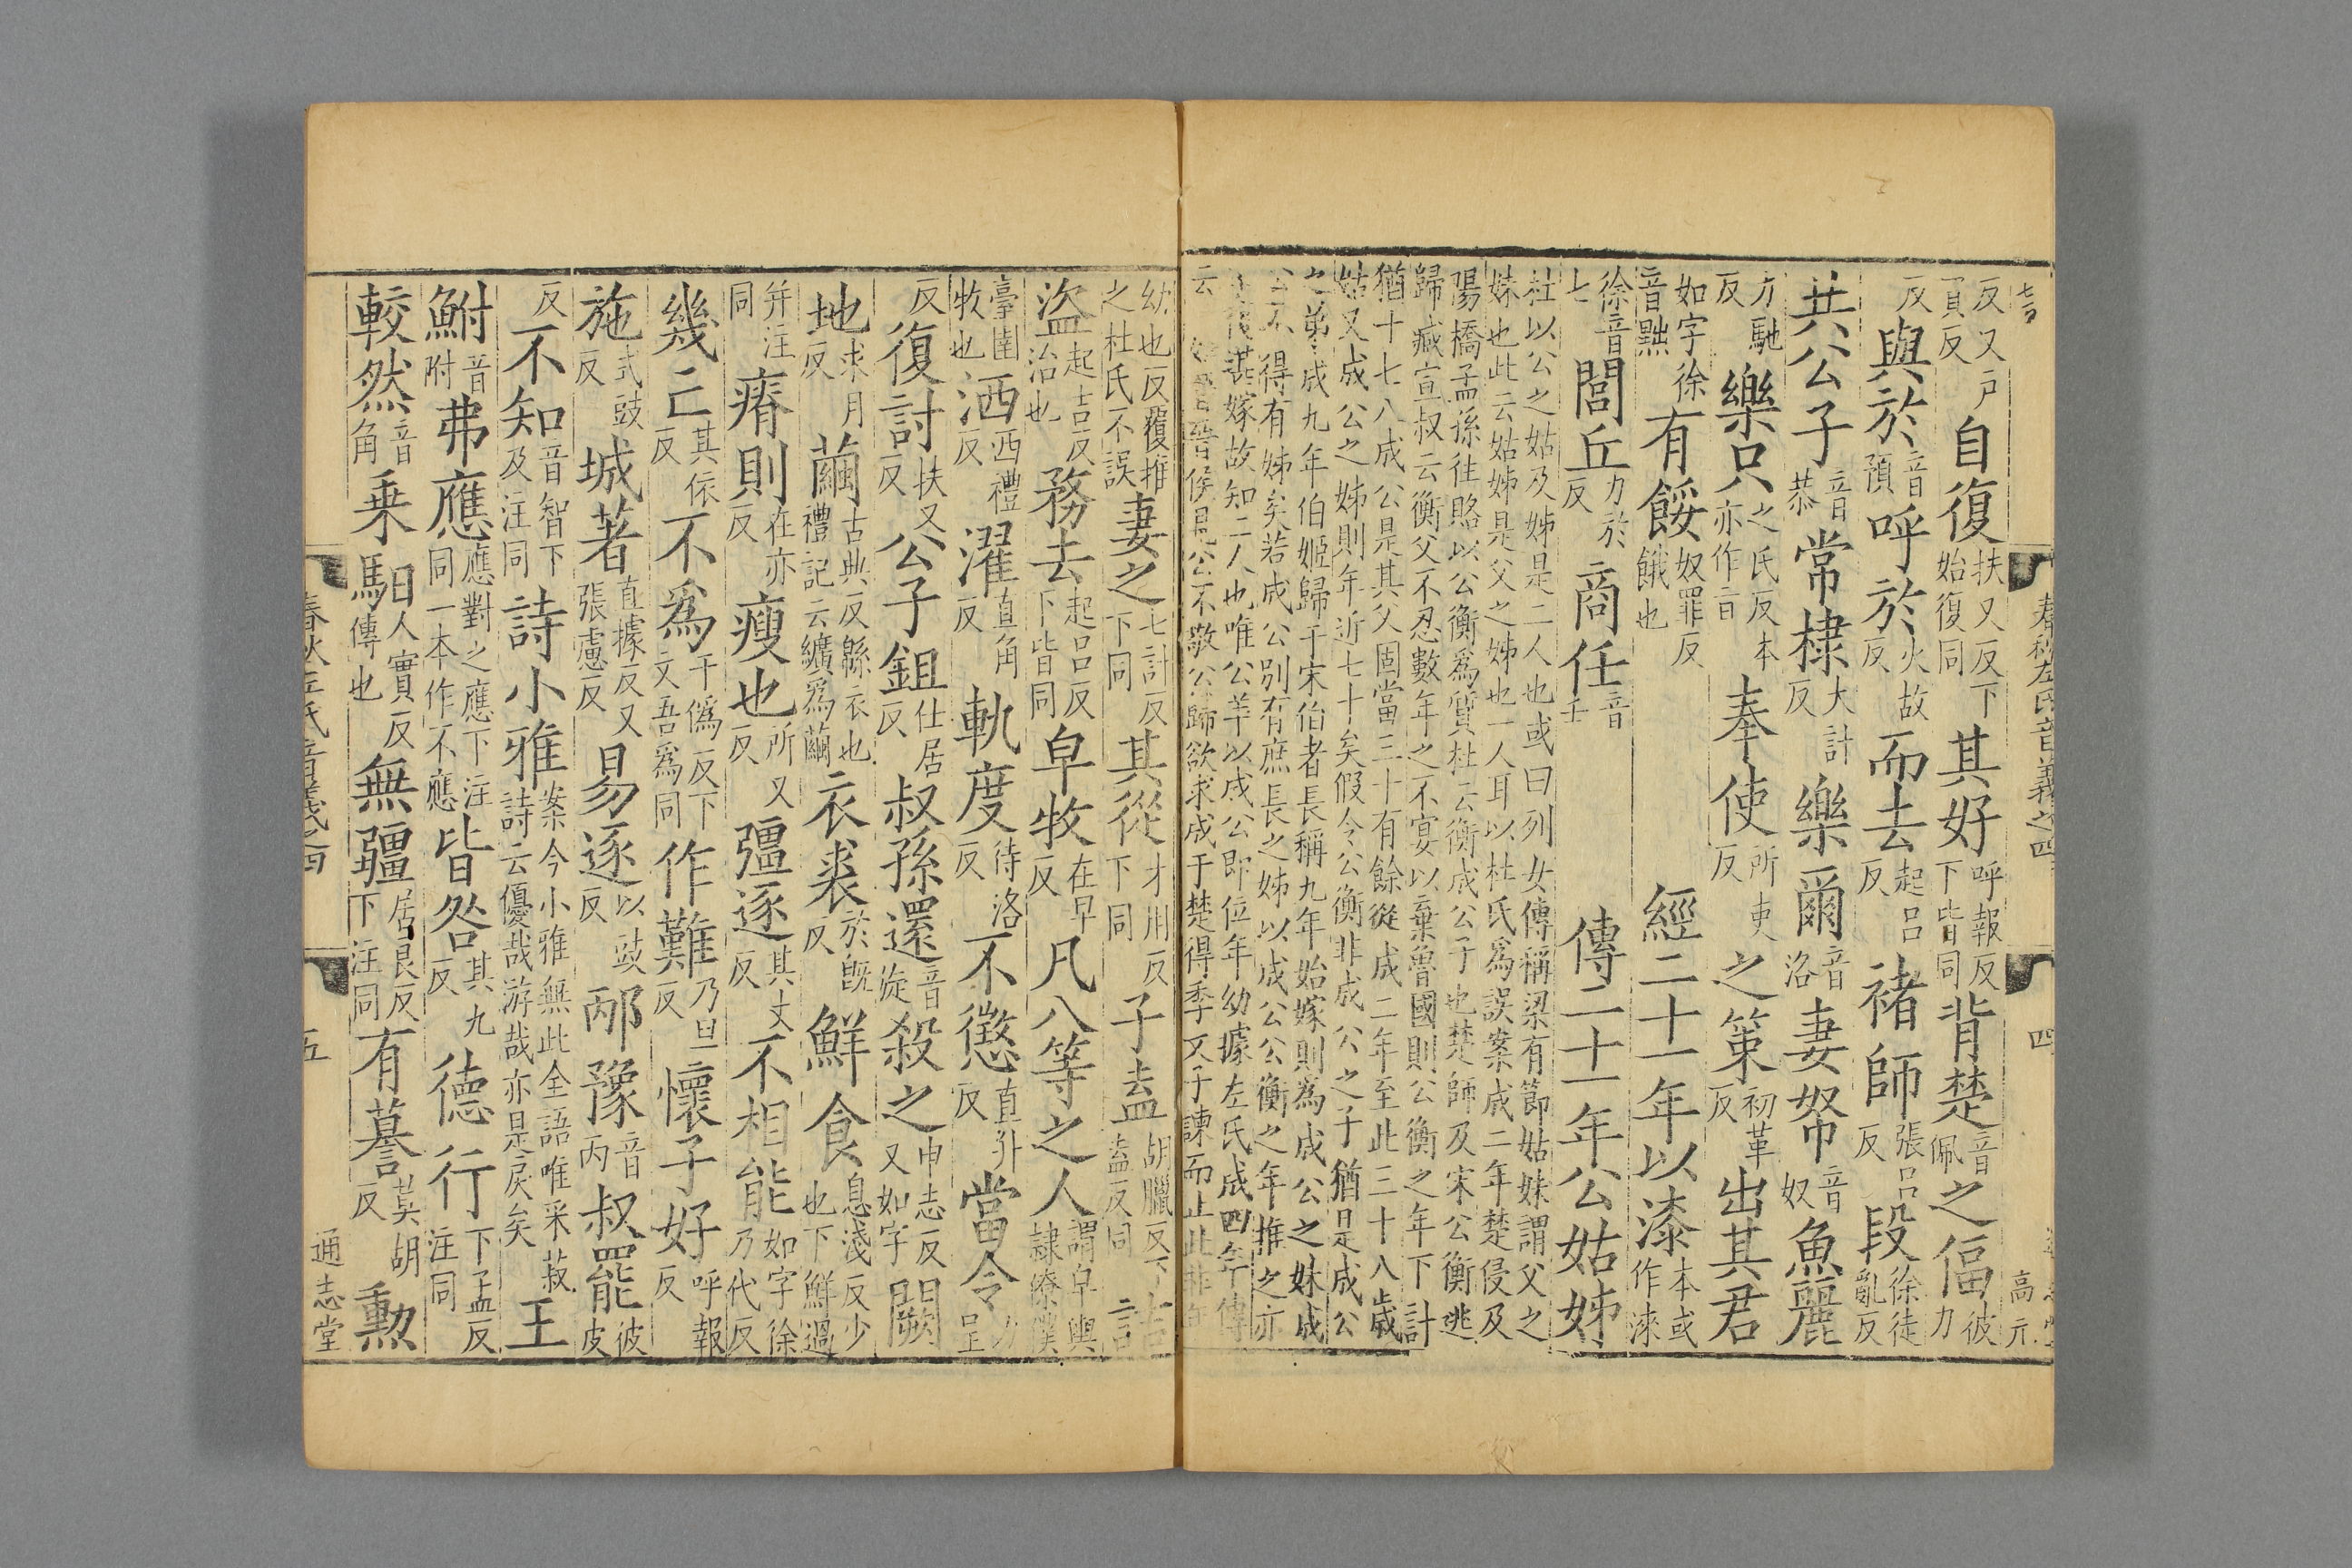 春秋左氏音義之四 四 高元
反又戶買反自復扶又反下始復同其好呼報反下皆同背楚音佩之偪彼力
反與於音預呼於火故反而去起呂反褚師張呂反段徐徒亂反
共公子音恭常棣大計反樂爾音洛妻帑音奴魚麗
力馳反樂只之氏反本亦作旨奉使所吏反之策初革反出其君
如字徐音黜有餒奴罪反餓也經二十一年以漆本或作淶
徐音七閭丘力於反商任音壬傳二十一年公姑姊
杜以公之姑及姊是二人也或曰列女傳稱梁有節姑妹謂父之
妹也此云姑姊是父之姊也一人耳以杜氏爲誤案成二年楚侵及
陽橋孟孫往賂以公衡爲質杜云衡成公子也楚師及宋公衡逃
歸臧宣叔云衡父不忍數年之不宴以棄魯國則公衡之年下計
猶十七八成公是其父固當三十有餘從成二年至此三十八歲
姑又成公之姊則年近七十矣假令公衡非成公之子猶是成公
之弟成九年伯姬歸于宋伯者長稱九年始嫁則爲成公之妹成
公不得有姊矣若成公別有庶長之姊以成公公衡之年推之亦
復堪嫁故知二人也唯公羊以成公即位年幼據左氏成四年傳
云 晉晉侯見公不敬公歸欲求成于楚得季文子諫而止此非年
幼也反覆推之杜氏不誤妻之七計反下同其從才用反下同子盍胡臘反下盍反同
盜起吉反治也務去起呂反下皆同皁牧在早反凡八等之人謂皁輿隸僚僕
臺圉牧也洒西禮反濯直角反軌度待洛反不懲直升反當令力呈
反復討扶又反公子鉏仕居反叔孫還音旋殺之申志反又如字闕
地求月反繭古典反緜衣也禮記云纊爲繭衣裘於旣反鮮食息淺反少也下鮮過
并注同瘠則在亦反瘦也所又反彊逐其丈反不相能如字徐乃代反
幾亡其依反不爲于僞反下文吾爲同作難乃旦反懷子好呼報反
施式豉反城著直據反又張慮反易逐以豉反邴豫音丙叔羆彼皮
反不知音智下及注同詩小雅案今小雅無此全語唯采菽詩云優哉游哉亦是戾矣王
鮒音附弗應應對之應下注同一本作不應皆咎其九反德行下孟反注同
較然音角乗馹人實反傳也無疆居良反下注同有謩莫胡反勲
春秋左氏音義之四 五 通志堂